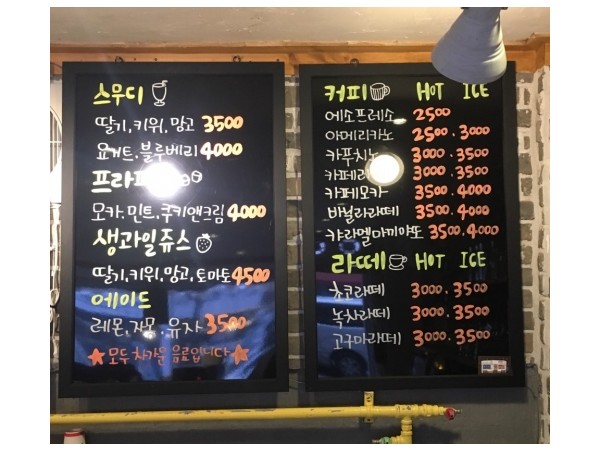 스무디
딸기,키위,망고 3500
요거트.블루베리 4000
모카.민트.쿠키앤크림 4000
생과일쥬스
딸기,키위,망고,토마토 4500
에이드
레몬.자몽.유자 3500
★모두 차가운 음료입니다★
커피 HOT ICE
에소프레소 2500
아메리카노 2500.3000
카푸치노 3000.3500
3000.3500
카페모카 3500.4000
바닐라라떼 3500.4000
캬라멜마끼아또 3500.4000
라떼 HOT ICE
쵸코라떼 3000.3500
녹차라떼 3000.3500
고구마라떼 3000.3500